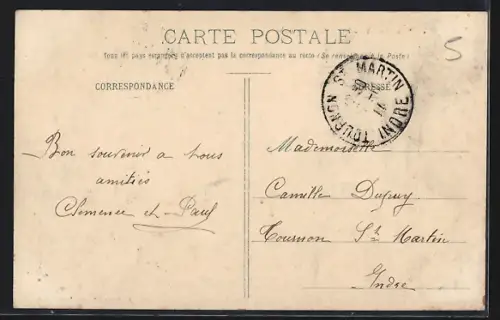 CARTE POSTALE
Tous les pays étrangers n'acceptent pas la correspondance au recto (Se renseigner à la Poste)
5
CORRESPONDANCE
ADRESSE
TOURNON ST MARTIN
INDRE
11
Bon souvenir a tous
amitiés
Clemence et Paul
Mademoiselle
Camille Dupuy
Tournon St Martin
Indre